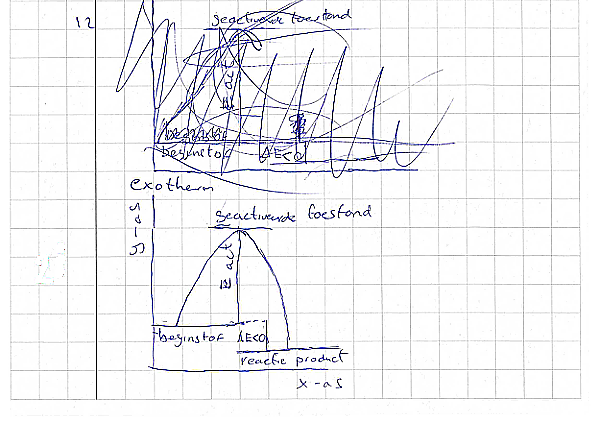 12
geactiveerde toestand
E act
beginstof
ΔE<0
exotherm
y-as
geactiveerde toestand
E act
beginstof
ΔE<0
reactie product
x-as